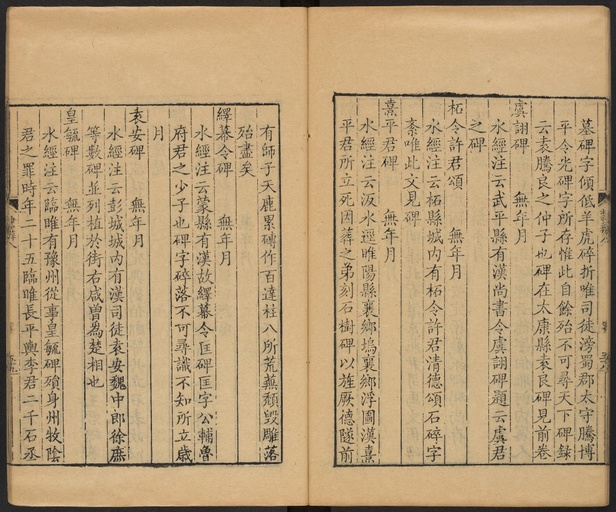 墓碑字傾低羊虎碎折唯司徒滂蜀郡太守騰博
平令光碑字所存惟此自餘殆不可尋天下碑錄
云袁騰良之仲子也碑在太康縣袁良碑見前卷
虞詡碑　無年月
水經注云武平縣有漢尚書令虞詡碑題云虞君
之碑
柘令許君頌　無年月
水經注云柘縣城内有柘令許君清德頌石碎字
紊唯此文見碑
熹平君碑　無年月
水經注云汳水逕睢陽縣襄鄉塢襄鄉浮圖漢熹
平君所立死因葬之弟刻石樹碑以旌厥德隧前
有師子天鹿累磚作百達柱八所荒蕪頹毀雕落
殆盡矣
繹幕令碑　無年月
水經注云蒙縣有漢故繹幕令匡碑匡字公輔魯
府君之少子也碑字碎落不可尋識不知所立歲
月
袁安碑　無年月
水經注云彭城城内有漢司徒袁安魏中郎徐庶
等數碑並列植於街右咸曾為楚相也
皇毓碑　無年月
水經注云臨睢有豫州從事皇毓碑殞身州牧陰
君之罪時年二十五臨睢長平輿李君二千石丞